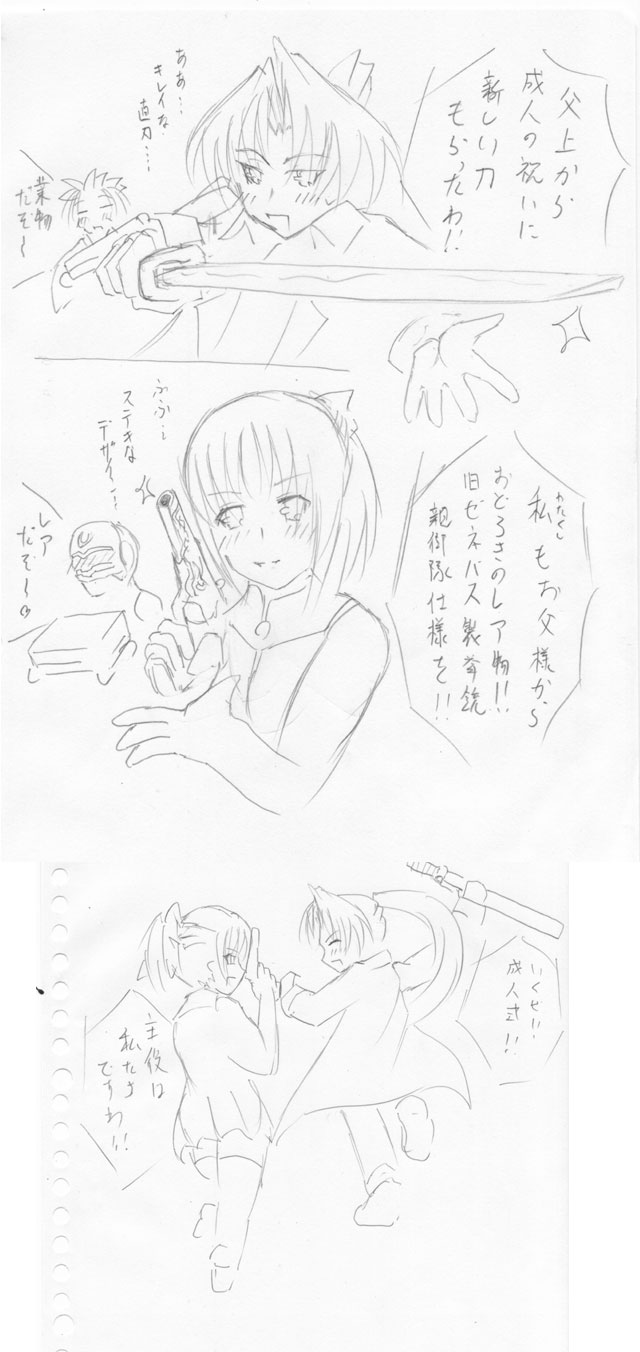 父上から
成人の祝いに
新しい刀
もらったわ!!
ああ…
キレイな
直刃…
業物
だぞ〜
わたくし
私もお父様から
おどろきのレア物!!
旧ゼネバス製拳銃
親衛隊仕様を!!
ふふ…
ステキな
デザイン…
レア
だぞ〜
いくぜ!!
成人式!!
主役は
私たち
ですわ!!